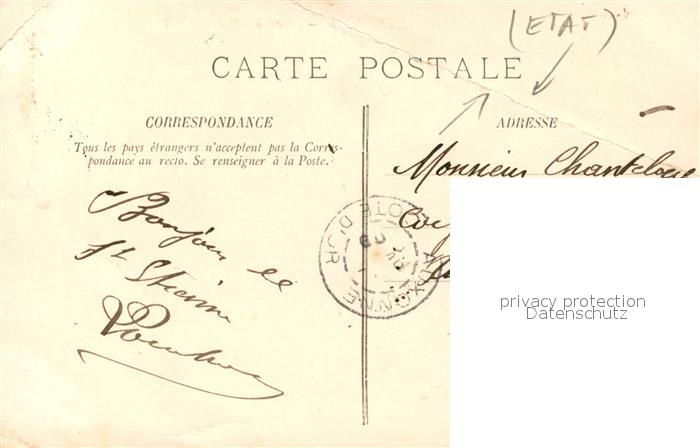 (ETAT)
CARTE POSTALE
CORRESPONDANCE
Tous les pays étrangers n'acceptent pas la Corres-
pondance au recto. Se renseigner à la Poste.
ADRESSE
Monsieur
Bonjour
St Etienne
AUXONNE
COTE D'OR
privacy protection
Datenschutz